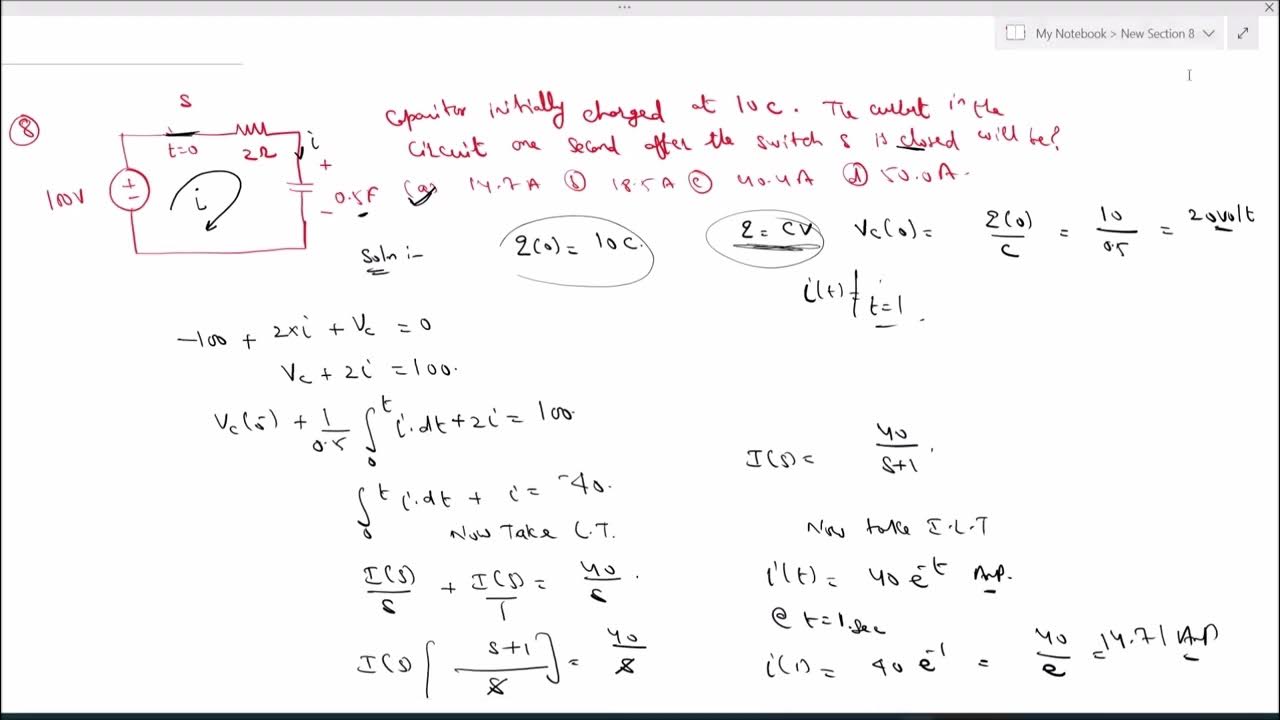 My Notebook > New Section 8
⑧
S
t=0
2Ω
i
+
100V
+
-
i
0.5F
-
Capacitor initially charged at 10C. The current in the
circuit one second after the switch S is closed will be?
(a) 14.7A (b) 18.5A (c) 40.4A (d) 50.0A.
Soln:-
Q(0) = 10C.
Q = CV
Vc(0) = Q(0)/C = 10/0.5 = 20 volt
i(t)| t=1
-100 + 2xi + Vc = 0
Vc + 2i = 100.
Vc(0) + 1/0.5 ∫₀ᵗ i.dt + 2i = 100
∫₀ᵗ i.dt + i = 40.
Now Take L.T.
I(s)/s + I(s)/1 = 40/s.
I(s) [s+1/s] = 40/s
I(s) = 40/s+1.
Now take I.L.T
i(t) = 40 e^-t Amp.
@ t=1.sec
i(1) = 40 e^-1 = 40/e = 14.71 Amp